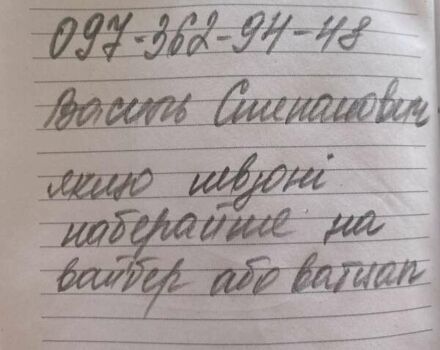 097-362-94-48
Василь Степанович
якщо невзоні
наберайте на
вайбер або ватцап